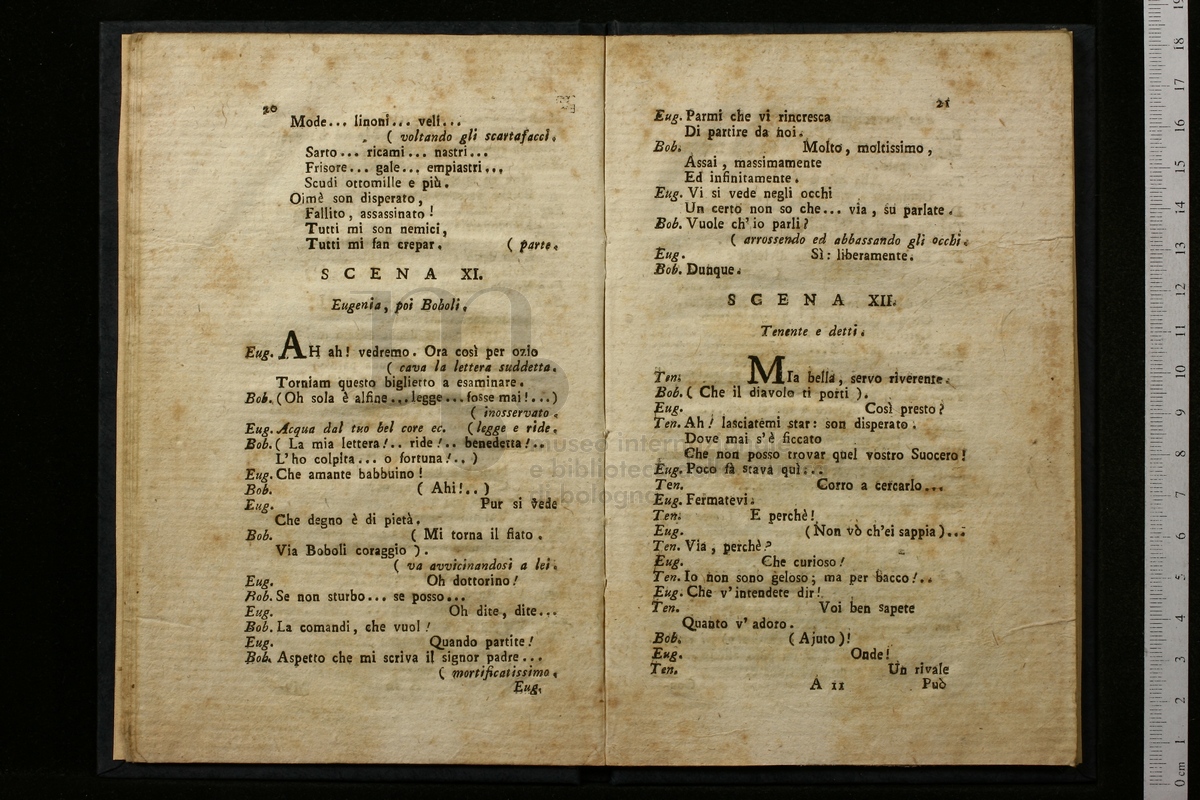 20
Mode... linoni... veli...
( voltando gli scartafacci.
Sarto... ricami... nastri...
Frisore... gale... empiastri...
Scudi ottomille e più.
Oimè son disperato,
Fallito, assassinato!
Tutti mi son nemici,
Tutti mi fan crepar. ( parte.
SCENA XI.
Eugenia, poi Boboli.
Eug. AH ah! vedremo. Ora così per ozio
( cava la lettera suddetta.
Torniam questo biglietto a esaminare.
Bob. (Oh sola è alfine...legge...fosse mai!...)
( inosservato.
Eug. Acqua dal tuo bel core ec. (legge e ride.
Bob. ( La mia lettera!.. ride!.. benedetta!..
L'ho colpita... o fortuna!.. )
Eug. Che amante babbuino!
Bob. ( Ahi!..)
Eug. Pur si vede
Che degno è di pietà.
Bob. ( Mi torna il fiato.
Via Boboli coraggio ).
( va avvicinandosi a lei.
Eug. Oh dottorino!
Bob. Se non sturbo... se posso...
Eug. Oh dite, dite...
Bob. La comandi, che vuol!
Eug. Quando partite!
Bob. Aspetto che mi scriva il signor padre...
( mortificatissimo.
Eug.
21
Eug. Parmi che vi rincresca
Di partire da noi.
Bob. Molto, moltissimo,
Assai, massimamente
Ed infinitamente.
Eug. Vi si vede negli occhi
Un certo non so che... via, su parlate.
Bob. Vuole ch'io parli?
( arrossendo ed abbassando gli occhi.
Eug. Sì: liberamente.
Bob. Dunque.
SCENA XII.
Tenente e detti.
Ten. MIa bella, servo riverente.
Bob. ( Che il diavolo ti porti ).
Eug. Così presto?
Ten. Ah! lasciatemi star: son disperato.
Dove mai s'è ficcato
Che non posso trovar quel vostro Suocero!
Eug. Poco fà stava quì...
Ten. Corro a cercarlo...
Eug. Fermatevi.
Ten. E perchè!
Eug. (Non vò ch'ei sappia)...
Ten. Via, perchè?
Eug. Che curioso!
Ten. Io non sono geloso; ma per bacco!..
Eug. Che v'intendete dir!
Ten. Voi ben sapete
Quanto v'adoro.
Bob. ( Ajuto )!
Eug. Onde!
Ten. Un rivale
A 11 Può